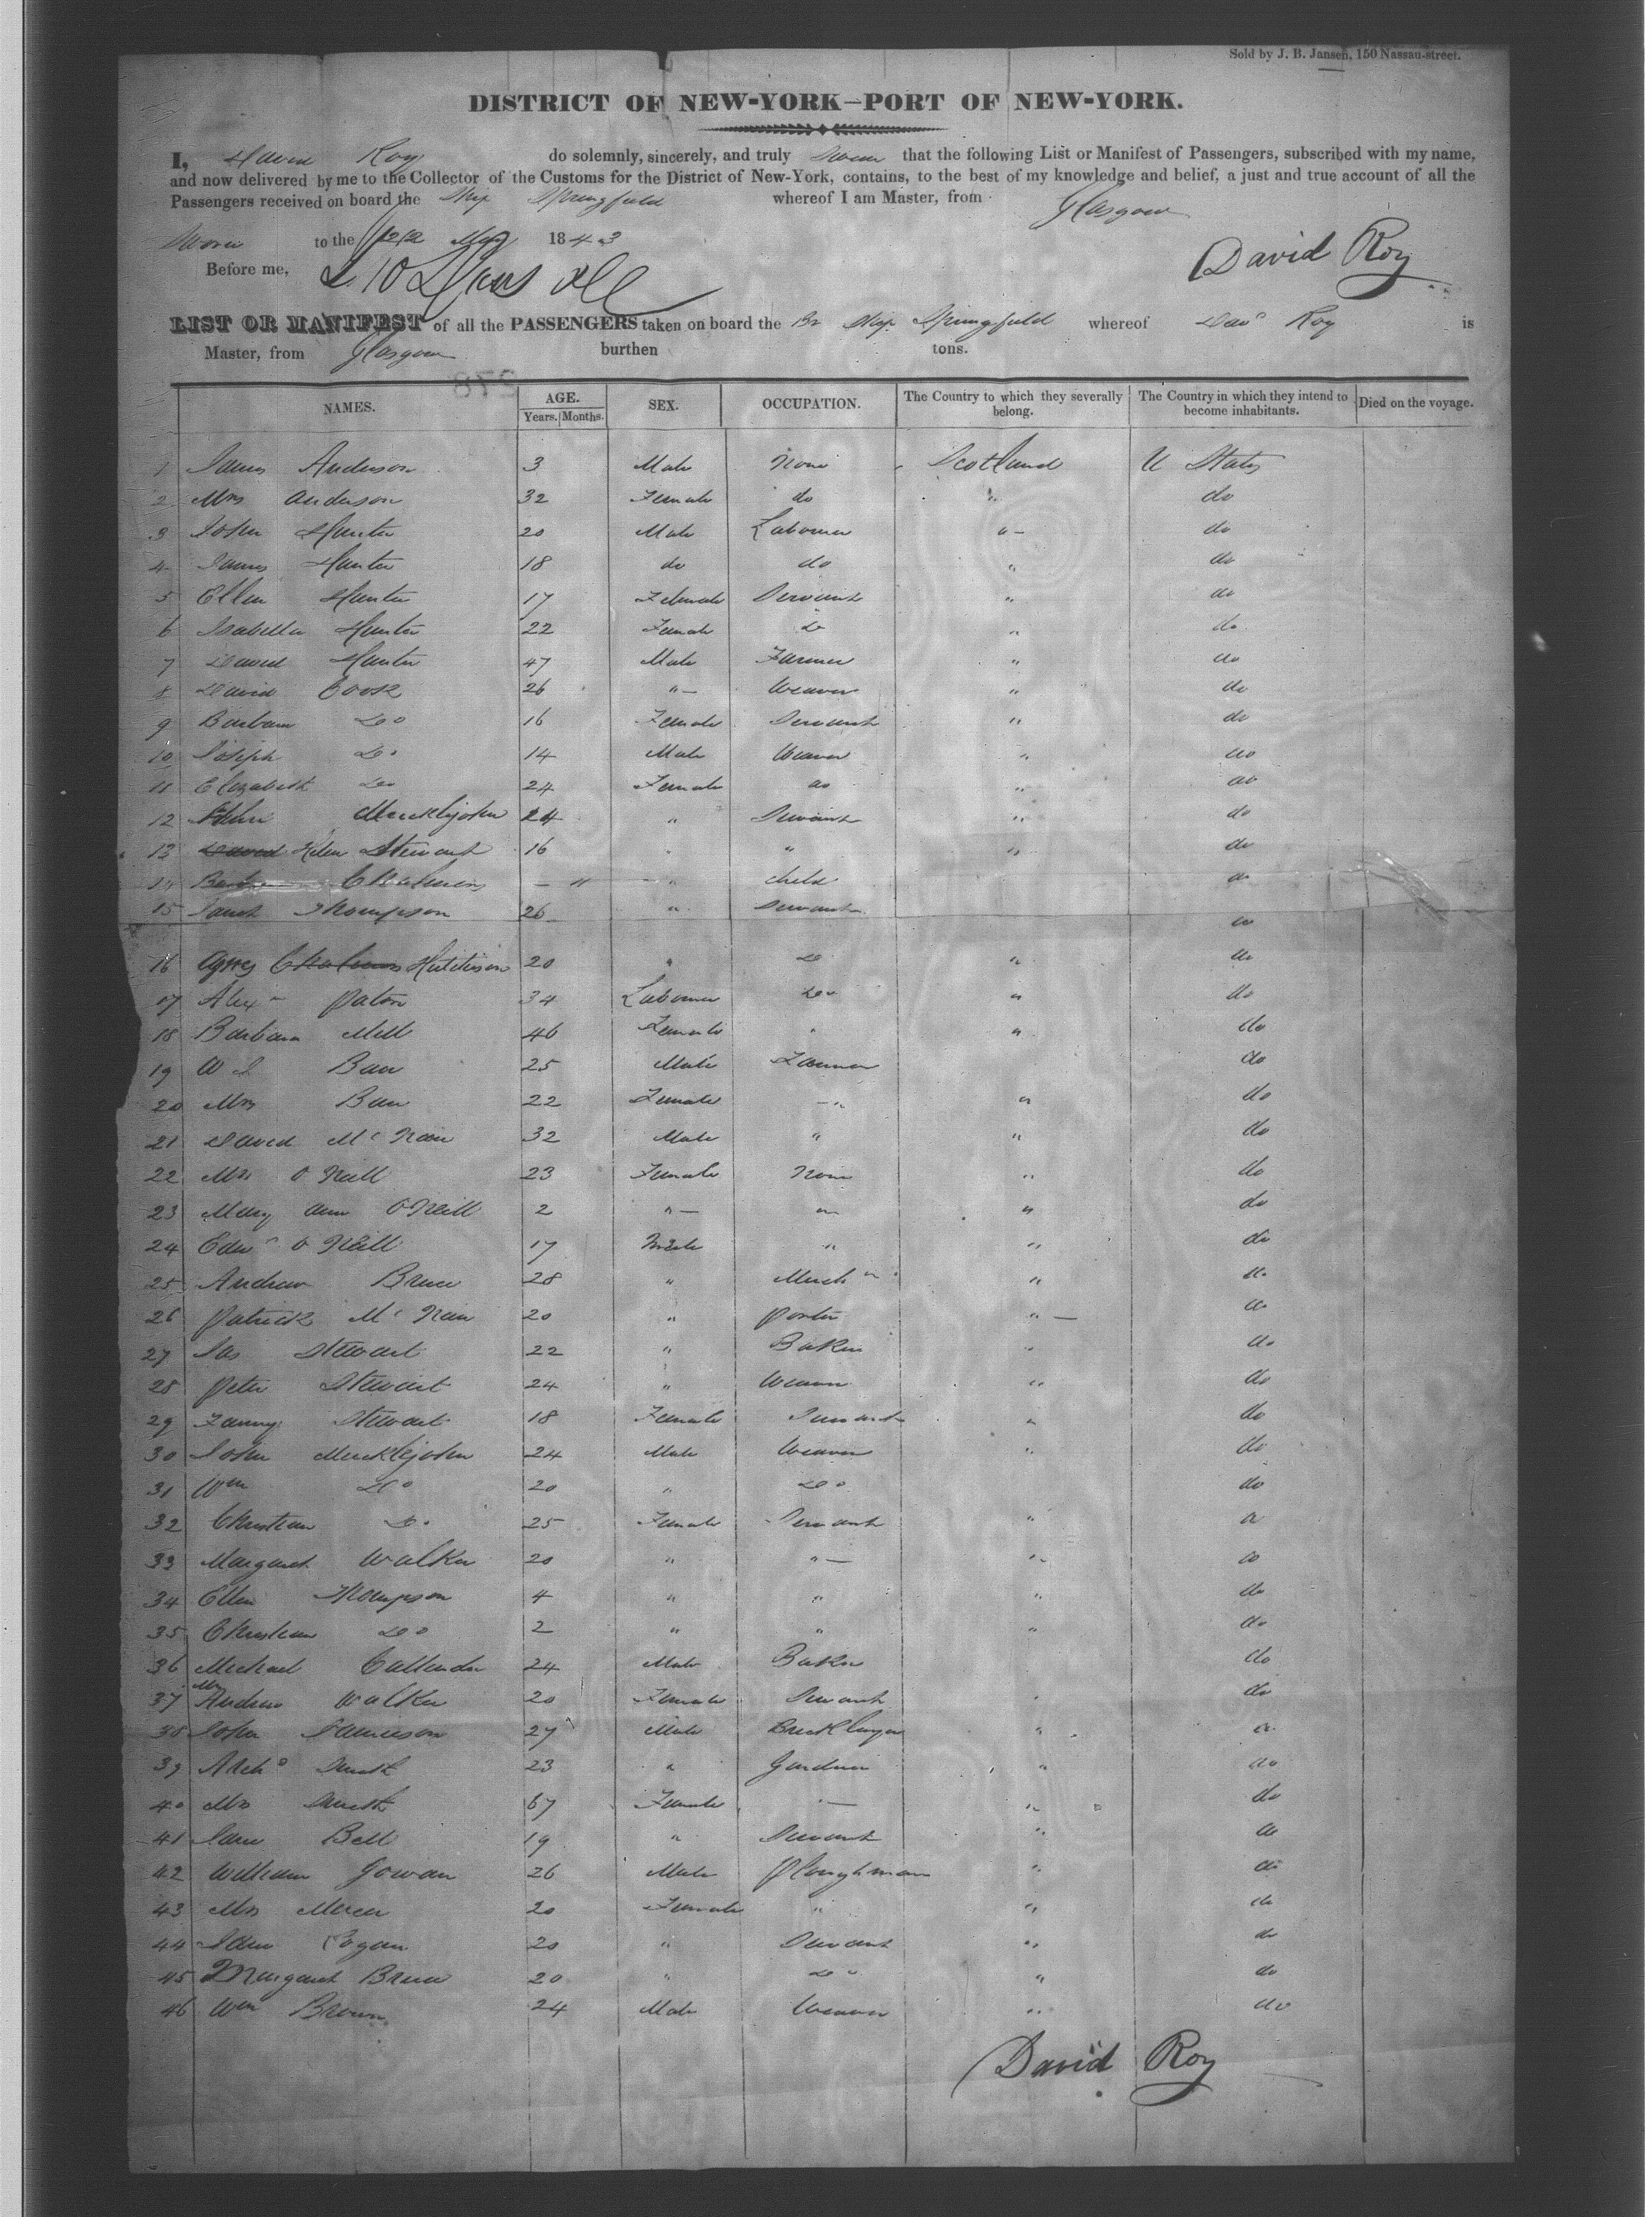 Sold by J. B. Jansen, 150 Nassau-street.
DISTRICT OF NEW-YORK—PORT OF NEW-YORK.
I, David Roy do solemnly, sincerely, and truly swear that the following List or Manifest of Passengers, subscribed with my name,
and now delivered by me to the Collector of the Customs for the District of New-York, contains, to the best of my knowledge and belief, a just and true account of all the
Passengers received on board the Ship Springfield whereof I am Master, from Glasgow
Sworn to the 22 May 1843
Before me,
David Roy
LIST OR MANIFEST of all the PASSENGERS taken on board the Br Ship Springfield whereof Davd Roy is
Master, from Glasgow burthen tons.
NAMES. AGE. Years. Months. SEX. OCCUPATION. The Country to which they severally belong. The Country in which they intend to become inhabitants. Died on the voyage.
1 James Anderson 3 Male None Scotland U States
2 Mrs Anderson 32 Female do " do
3 John Hunter 20 Male Labourer " do
4 James Hunter 18 do do " do
5 Ellen Hunter 17 Female Servant " do
6 Isabella Hunter 22 Female do " do
7 David Hunter 47 Male Farmer " do
8 David Cook 26 " Weaver " do
9 Barbara Do 16 Female Servant " do
10 Joseph Do 14 Male Weaver " do
11 Elizabeth Do 24 Female do " do
12 Mucklejohn 24 " Servant " do
13 David Helen Stewart 16 " " " do
14 Chalmers — " " child do
15 Janet Thompson 26 " Servant do
16 Agnes Chalmers Hutchison 20 " Do " do
17 Alexr Paton 34 Labourer Do " do
18 Barbara Mill 46 Female " " do
19 W J Barr 25 Male Farmer do
20 Mrs Barr 22 Female " " do
21 David McNair 32 Male " " do
22 Mrs O Neill 23 Female None " do
23 Mary Ann O'Neill 2 " " " do
24 Edwd O Neill 17 Male " " do
25 Andrew Bruce 28 " Mechn " do
26 Patrick McNair 20 " Porter " do
27 Jas Stewart 22 " Baker " do
28 Peter Stewart 24 " Weaver " do
29 Fanny Stewart 18 Female Servant " do
30 John Mucklejohn 24 Male Weaver " do
31 Wm Do 20 " Do do
32 Christian Do 25 Female Servant " do
33 Margaret Walker 20 " " " do
34 Ellen Thompson 4 " " " do
35 Christian Do 2 " " " do
36 Michael Callender 24 Male Baker do
37 Mrs Andrew Walker 20 Female Servant " do
38 John Jamieson 27 Male Bricklayer " do
39 Archd Smith 23 " Gardner " do
40 Mrs Smith 67 Female — " do
41 Jane Bell 19 " Servant " do
42 William Gowan 26 Male Ploughman " do
43 Mrs Mercer 20 Female " " do
44 Jane Cogan 20 " Servant " do
45 Margaret Bruce 20 " Do " do
46 Wm Brown 24 Male Weaver " do
David Roy